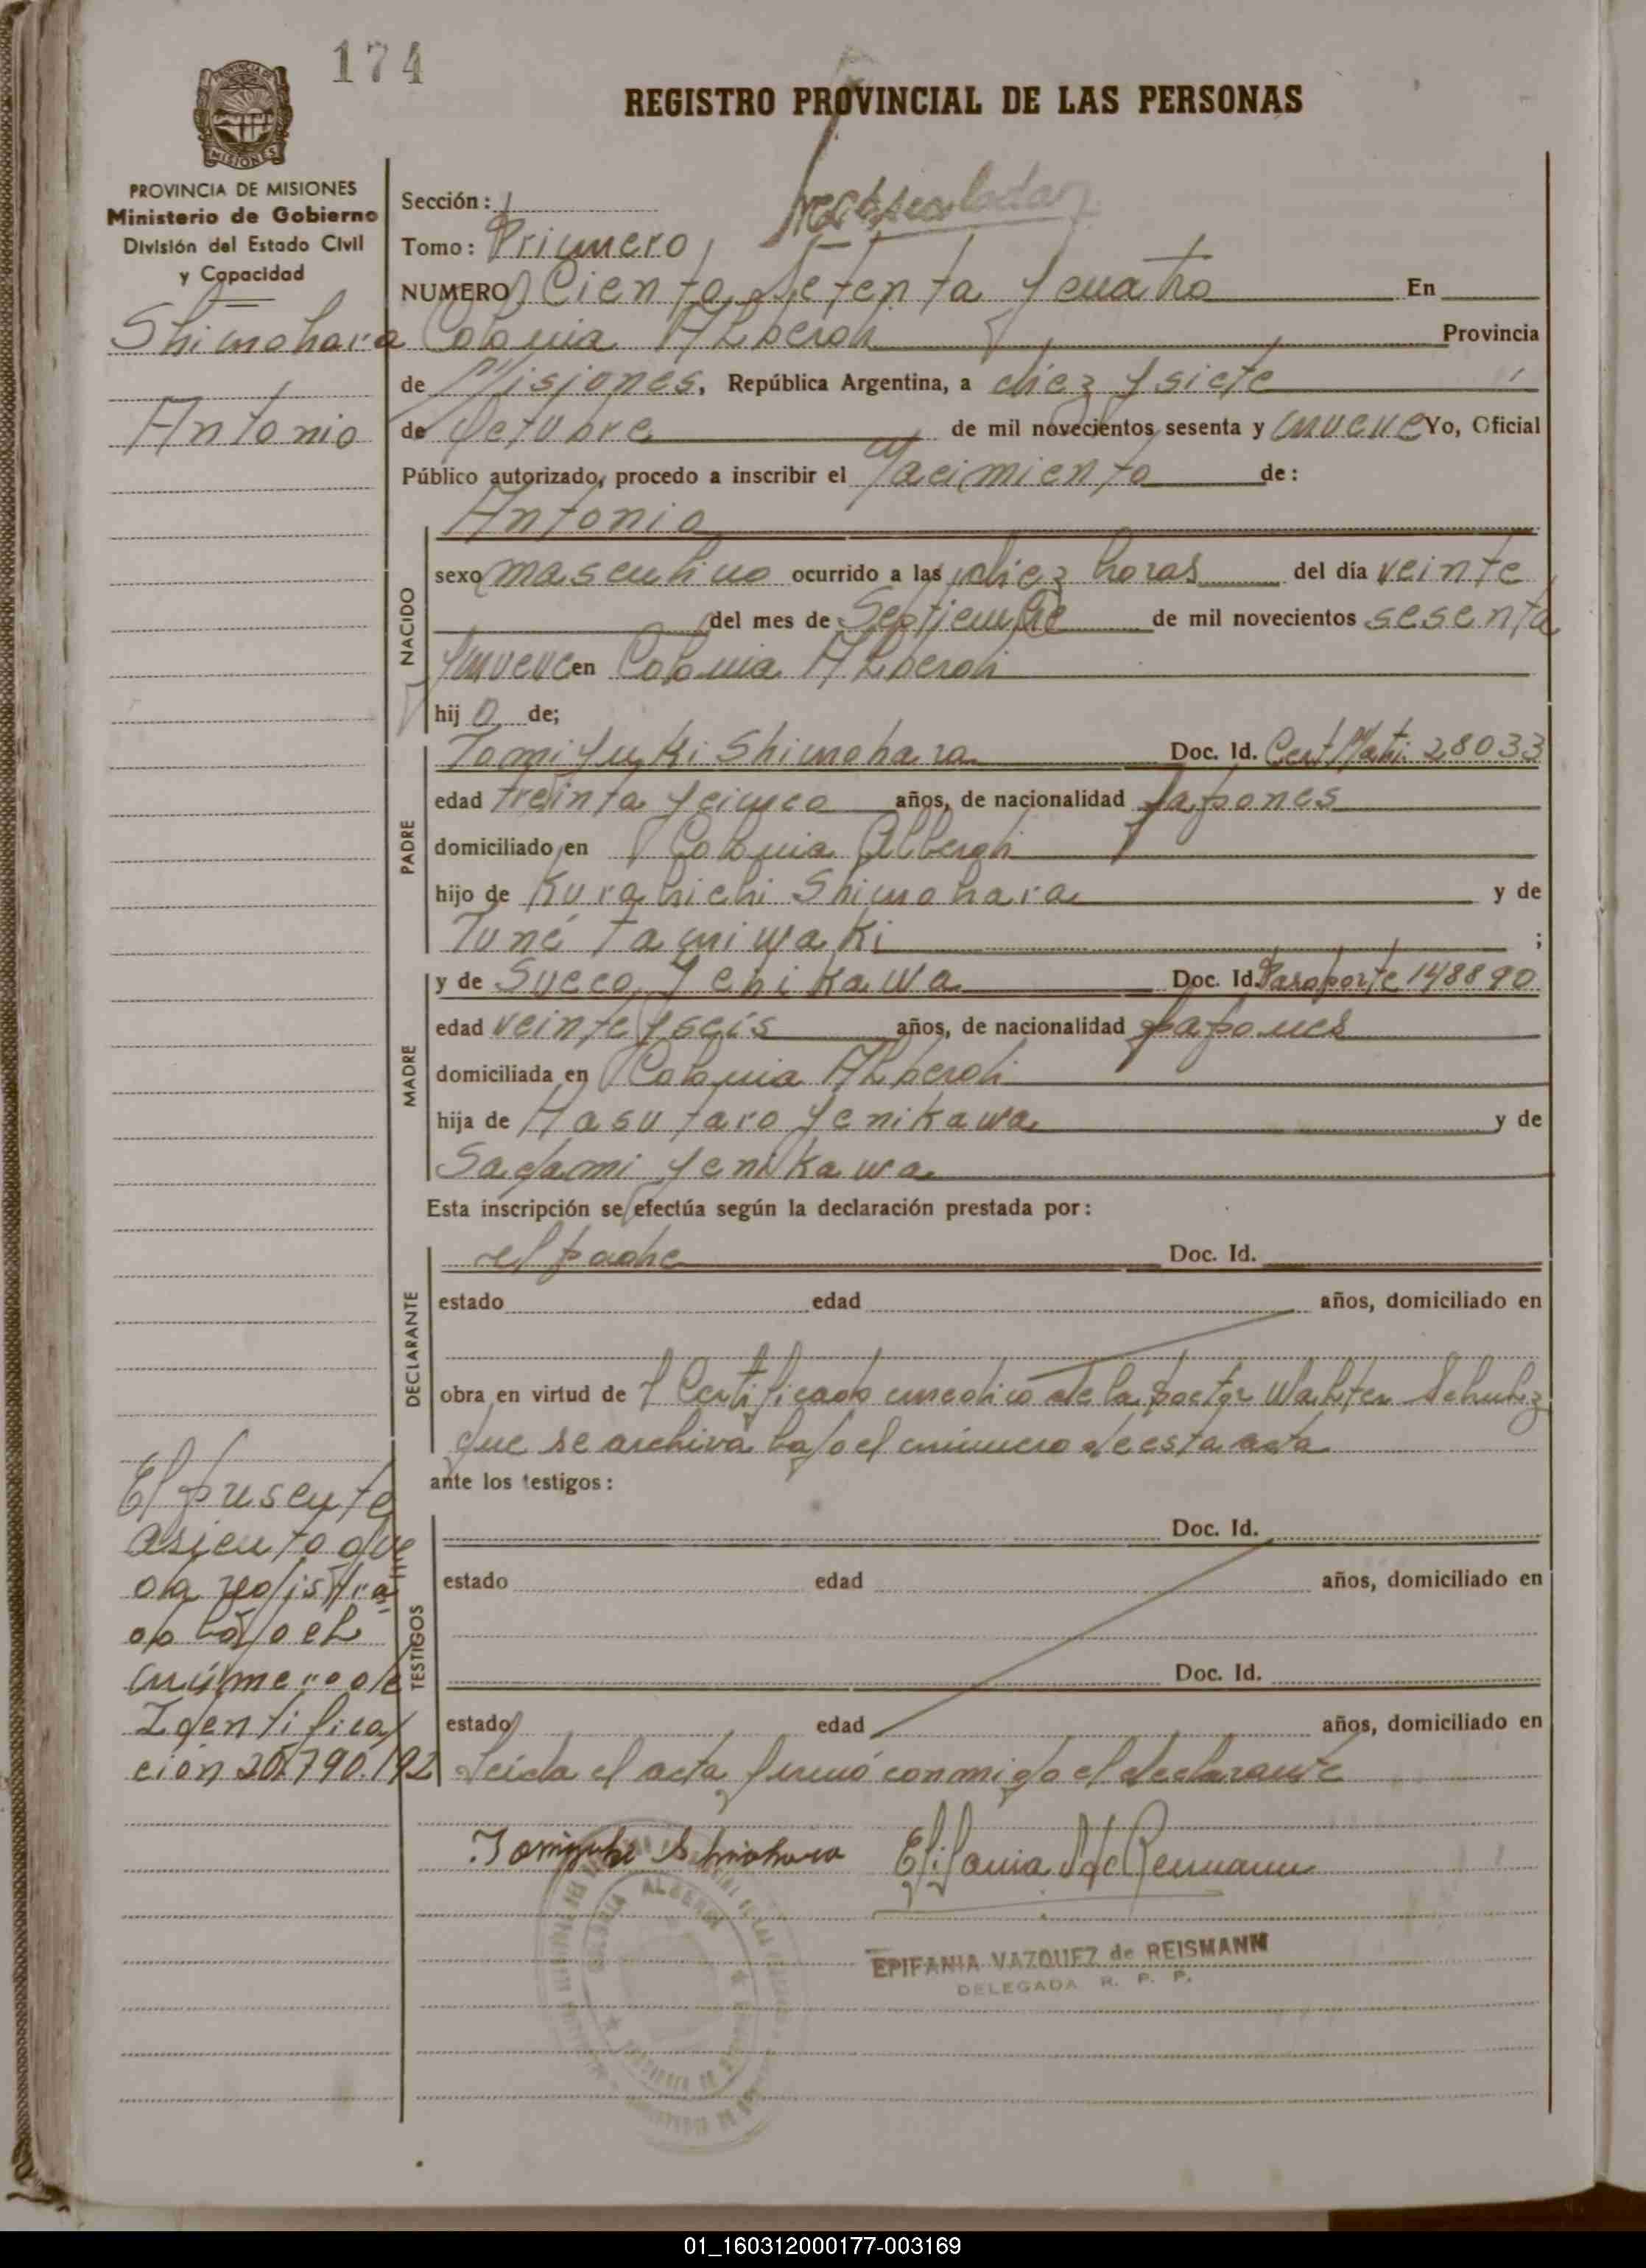 174
REGISTRO PROVINCIAL DE LAS PERSONAS
MISIONES
PROVINCIA DE MISIONES
Ministerio de Gobierno
División del Estado Civil
y Capacidad
Shimohara
Antonio
Sección: 1
Tomo: Primero
NUMERO Ciento Setenta y cuatro En
Colonia Alberdi Provincia
de Misiones, República Argentina, a diez y siete
de Octubre de mil novecientos sesenta y nueve Yo, Oficial
Público autorizado, procedo a inscribir el Nacimiento de:
Antonio
NACIDO
sexo masculino ocurrido a las diez horas del día veinte
del mes de Septiembre de mil novecientos sesenta
y nueve en Colonia Alberdi
hijo de;
PADRE
Tomiyuki Shimohara Doc. Id. Cert Matri. 28033
edad treinta y cinco años, de nacionalidad Japones
domiciliado en Colonia Alberdi
hijo de Kurahichi Shimohara y de
Tuné Tamiwaki ;
MADRE
y de Sueco Yenikawa Doc. Id. Pasaporte 148890
edad veinte y seis años, de nacionalidad japones
domiciliada en Colonia Alberdi
hija de Masutaro Yenikawa y de
Sadami Yenikawa
Esta inscripción se efectúa según la declaración prestada por:
DECLARANTE
el padre Doc. Id.
estado edad años, domiciliado en
obra en virtud de y Certificado medico de la Doctor Walter Schulz
que se archiva bajo el número de esta acta
ante los testigos:
TESTIGOS
Doc. Id.
estado edad años, domiciliado en
Doc. Id.
estado edad años, domiciliado en
Leida el acta firmó conmigo el declarante
El presente
asiento que
da registra
do bajo el
número de
Identifica
ción 20.790.192
Tomiyuki Shimohara
EPIFANIA VAZQUEZ de REISMANN
DELEGADA R. P. P.
01_160312000177-003169